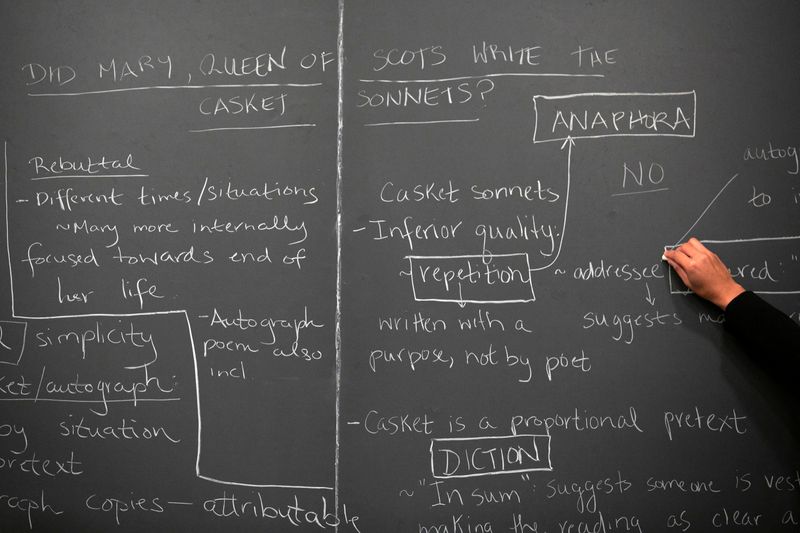 DID MARY, QUEEN OF SCOTS WRITE THE
CASKET SONNETS?
Rebuttal
- Different times/situations
~ Mary more internally
focused towards end of
her life.
simplicity
ket/autograph:
by situation
pretext
graph copies — attributable
- Autograph
poem also
incl.
ANAPHORA
NO
Casket sonnets
- Inferior quality:
~ repetition
written with a
purpose, not by poet
autog
to i
~ addressee
ered: "
suggests ma
- Casket is a proportional pretext
DICTION
~ "In sum": suggests someone is vest
making the reading as clear a